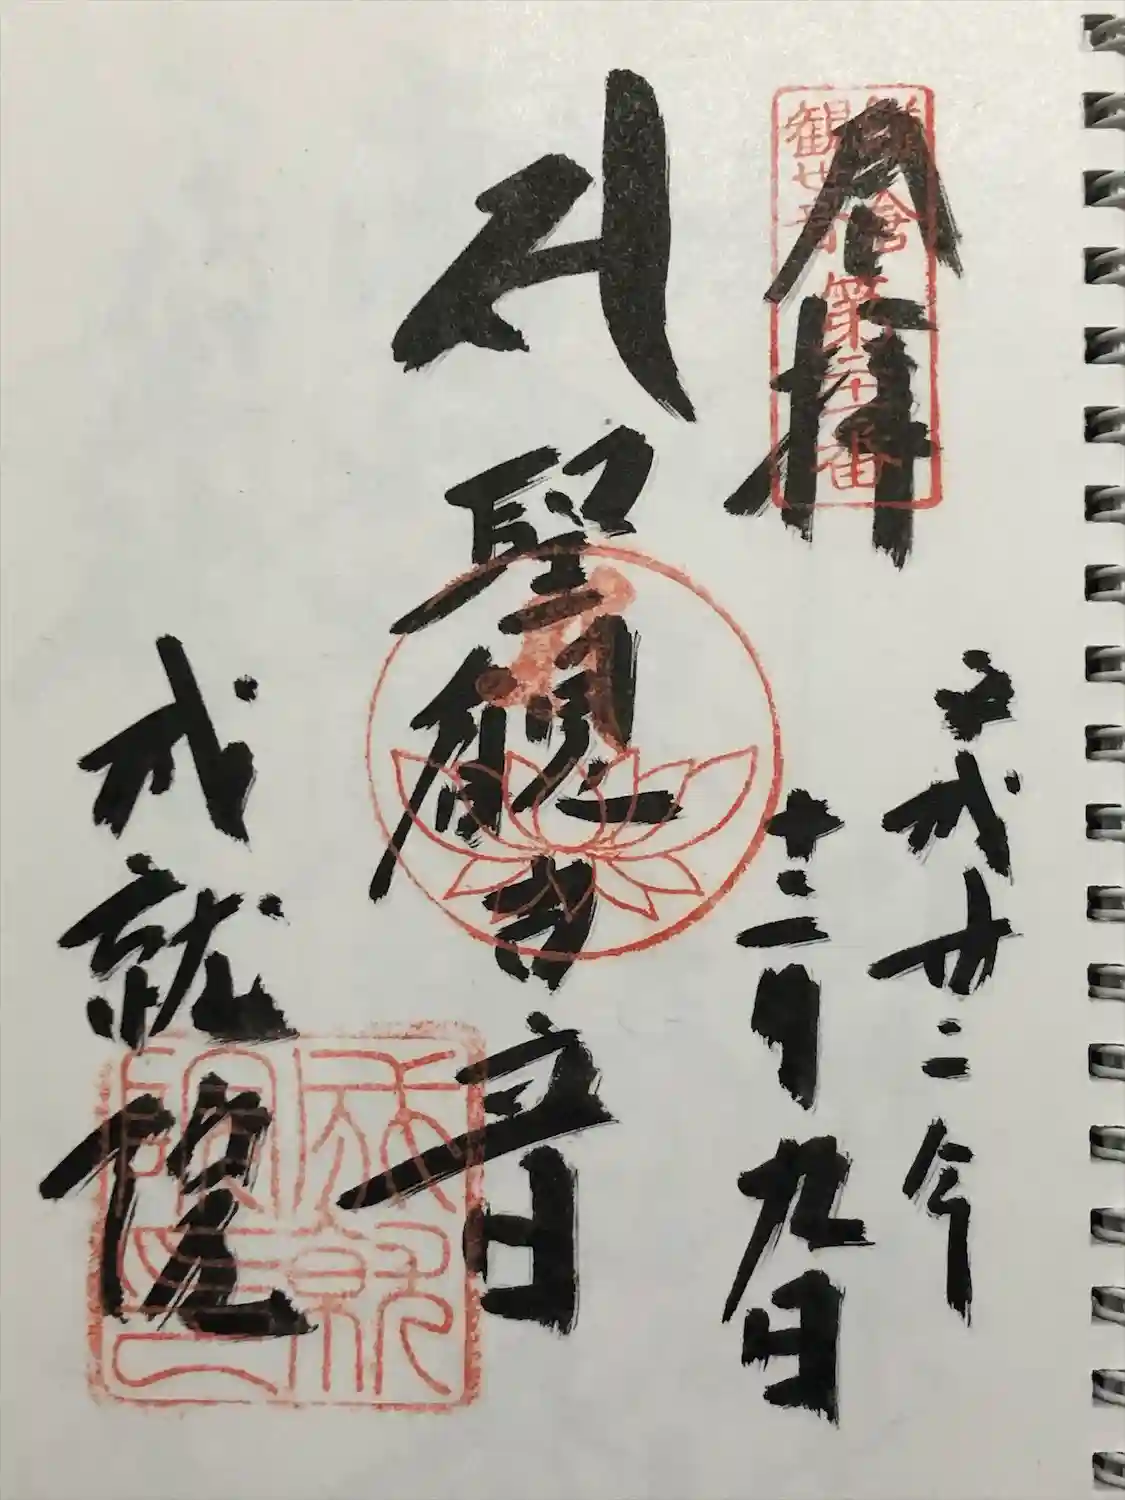 奉拝
鎌倉
観世音
第二十一番
平成廿二年
十二月九日
サ
聖観世音
成就院
成就院印